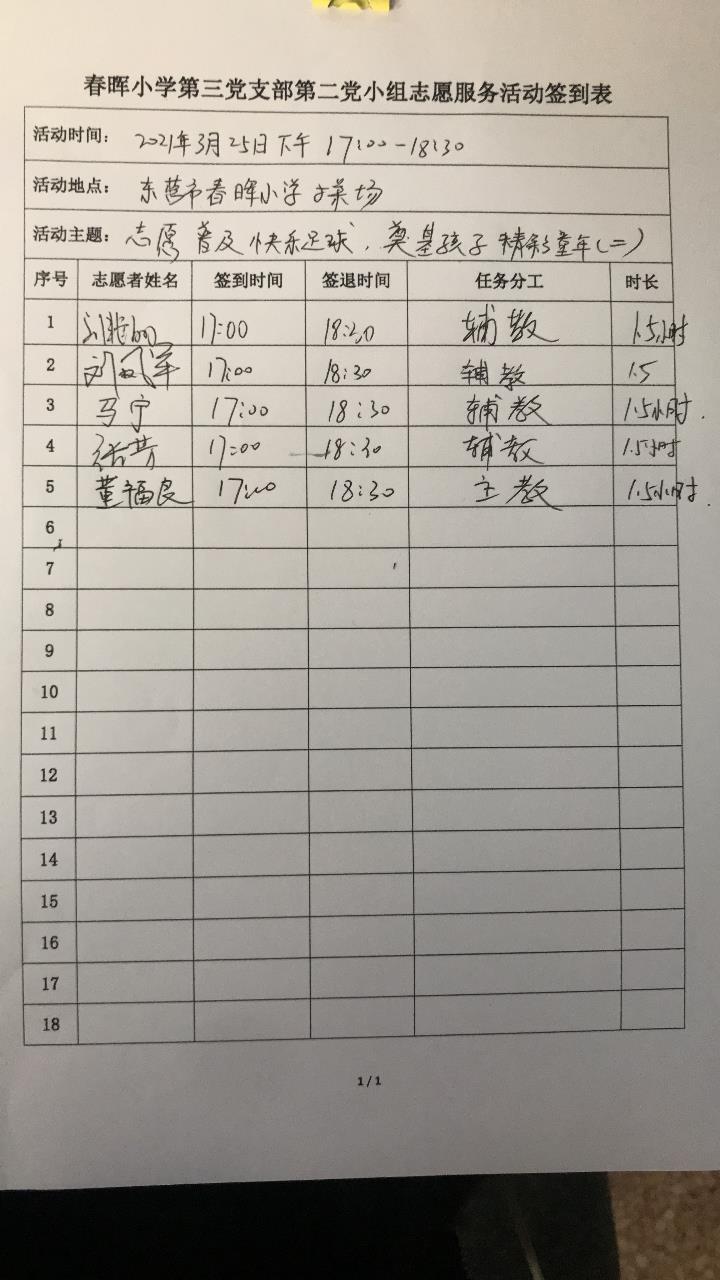 春晖小学第三党支部第二党小组志愿服务活动签到表
活动时间： 2021年3月25日下午 17:00-18:30
活动地点： 东营市春晖小学操场
活动主题： 志愿普及快乐足球，奠基孩子精彩童年(二)
序号 志愿者姓名 签到时间 签退时间 任务分工 时长
1 17:00 18:30 辅教 1.5小时
2 17:00 18:30 辅教 1.5
3 马宁 17:00 18:30 辅教 1.5小时.
4 张芳 17:00 18:30 辅教 1.5小时
5 董福良 17:00 18:30 主教 1.5小时.
6
7
8
9
10
11
12
13
14
15
16
17
18
1/1